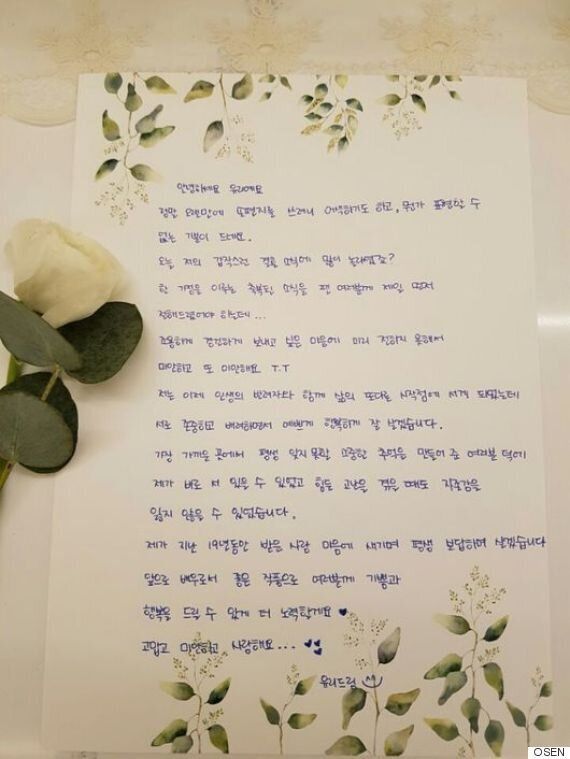 안녕하세요 유리에요
정말 오랜만에 손편지를 쓰려니 어색하기도 하고, 뭔가 표현할 수
없는 기분이 드네요.
오늘 저의 갑작스런 결혼 소식에 많이 놀라셨죠?
한 가정을 이루는 축복된 소식을 팬 여러분께 제일 먼저
전해드렸어야 하는데...
조용하게 경건하게 보내고 싶은 마음에 미리 전하지 못해서
미안하고 또 미안해요 T.T
저는 이제 인생의 반려자와 함께 삶의 또다른 시작점에 서게 되었는데
서로 존중하고 배려하면서 예쁘게 행복하게 잘 살겠습니다.
가장 가까운 곳에서 평생 잊지못할 소중한 추억을 만들어 준 여러분 덕에
제가 바로 서 있을 수 있었고 힘든 고난을 겪을 때도 자존감을
잃지 않을 수 있었습니다.
제가 지난 19년동안 받은 사랑 마음에 새기며 평생 보답하며 살겠습니다
앞으로 배우로서 좋은 작품으로 여러분께 기쁨과
행복을 드릴 수 있게 더 노력할게요 ♥
고맙고 미안하고 사랑해요... ♥♥♥
유리드림
OSEN